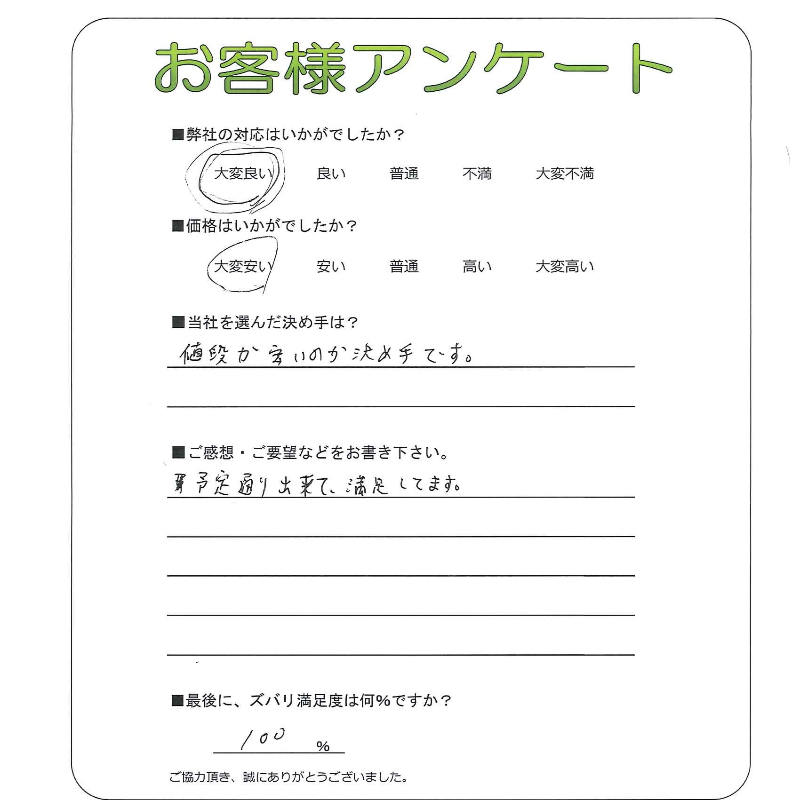 お客様アンケート
■弊社の対応はいかがでしたか？
大変良い 良い 普通 不満 大変不満
■価格はいかがでしたか？
大変安い 安い 普通 高い 大変高い
■当社を選んだ決め手は？
値段が安いのが決め手です。
■ご感想・ご要望などをお書き下さい。
予定通り出来て、満足してます。
■最後に、ズバリ満足度は何%ですか？
100 %
ご協力頂き、誠にありがとうございました。